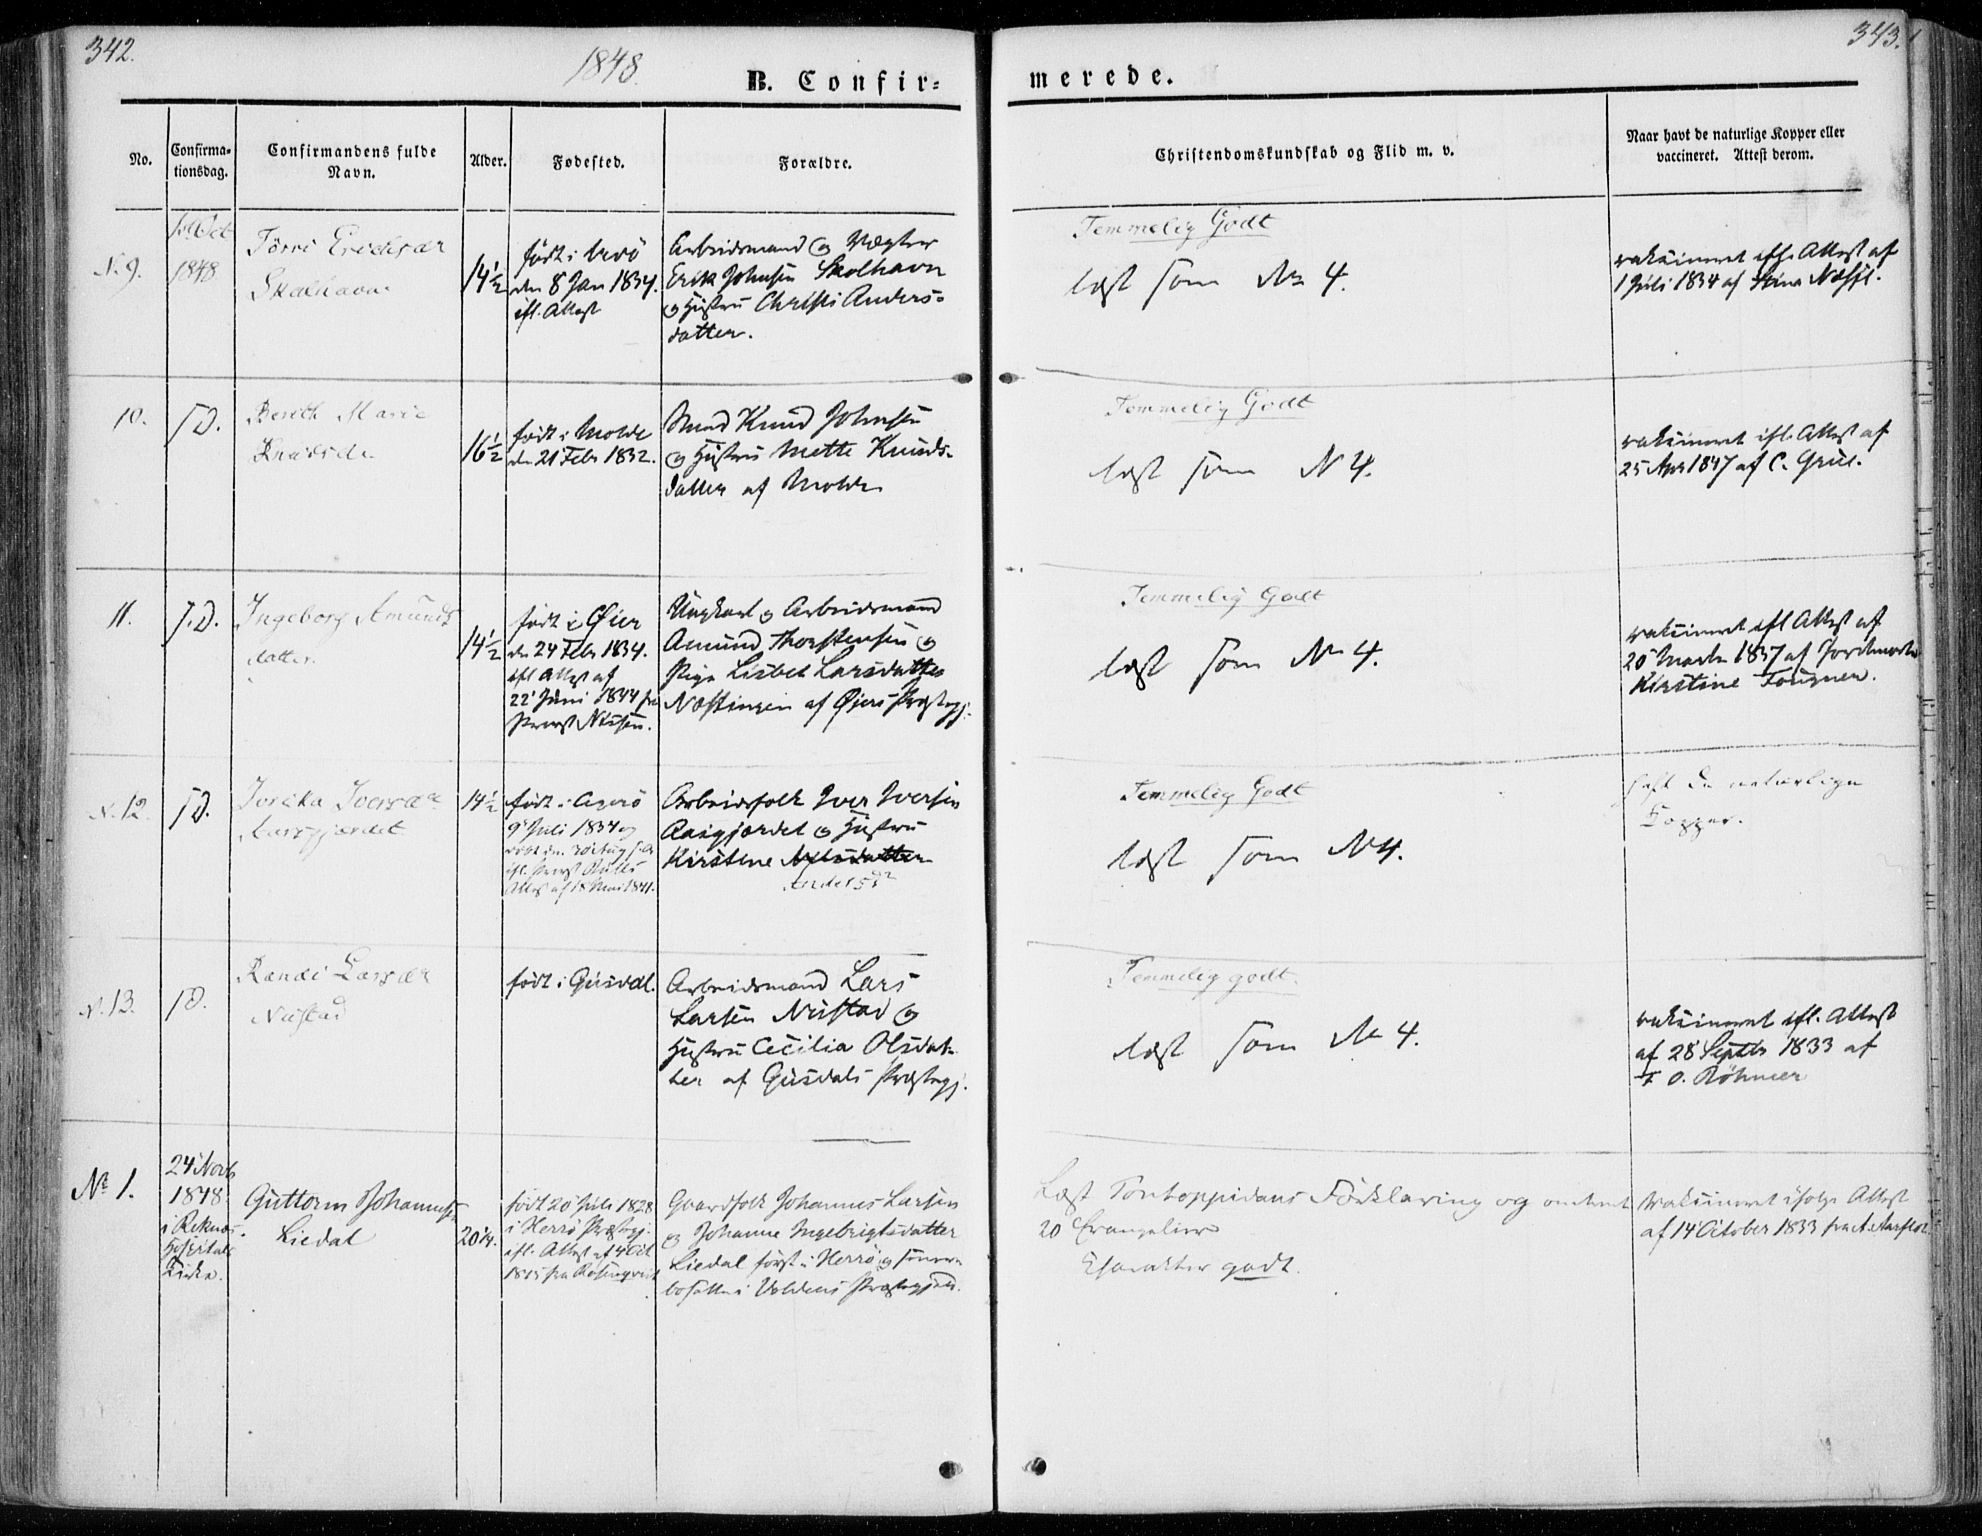 342.
1848.
B. Confir=
merede.
343.
No.
Confirma-
tionsdag.
Confirmandens fulde
Navn.
Alder.
Fødested.
Forældre.
Christendomskundskab og Flid m. v.
Naar havt de naturlige Kopper eller
vaccineret. Attest derom.
N. 9.
Oct
1848
Erichsdr
Skalhavn
14½
født i
den 8 Jan 1834.
ifl. Attest
Arbeidsmand og Vægter
Erik Johnsen Skolhavn
og Hustru Christi Anders-
datter.
Temmelig Godt
læst som No 4.
vaksineret ifl. Attest af
1 Juli 1834 af
10.
J.D.
Berith Marie
Knudsdr
16½
født i Molde
den 21 Febr 1832.
Knud Johnsen
og Hustru Mette Knuds-
datter af Molde
Temmelig Godt
læst som N 4.
vaksineret ifl. Attest af
25 Apr 1847 af C.
11.
J.D.
Ingeborg Amunds
datter.
14½
født i Øier
den 24 Febr 1834.
ifl Attest af
22 Juni 1844 fra
Provst
Ungkarl og Arbeidsmand
Amund Thorstensen og
Pige Lisbet Larsdatter
af Øiers Præstegj.
Temmelig Godt
læst som No 4.
vaksineret ifl Attest af
20 1837 af Jordemoder
Kirstine
N. 12.
J.D.
Iversdr
14½
født i Agerö
9 Juli 1834 og
ifl. Provst
Attest af 18 Mai 1841.
Arbeidsfolk Iver Iversen
Aasgjærdet og Hustru
Kirstine
Andersdr
Temmelig Godt
læst som N 4.
haft de naturlige
Kopper.
N. 13.
J.D.
Randi Larsdr
Nustad
født i Gusdal.
Arbeidsmand Lars
Larsen Nustad og
Hustru Cecilia Olsdat-
ter af Gusdals Præstegj.
Temmelig godt.
læst som No 4.
vaksineret ifl. Attest
af 28 Septb 1833 af
O.
No 1.
24 Novb
1848
i Reknes
Hospitals
Kirke.
Guttorm Johannes
Liedal
20¼.
født 20 Juli 1828
i Herrö Præstegj.
ifl. Attest af 4 Oct
fra Rosenqvist
Gaardfolk Johannes Larsen
og Johanne Ingebrigtsdatter
Liedal først i Herrö og
bosatte i Voldens Præstegjeld.
Læst Pontoppidans Forklaring og omtrent
20 Evangelier
Charakter godt.
Vaksineret ifølge Attest
af 14 October 1833 fra A. Aarflot